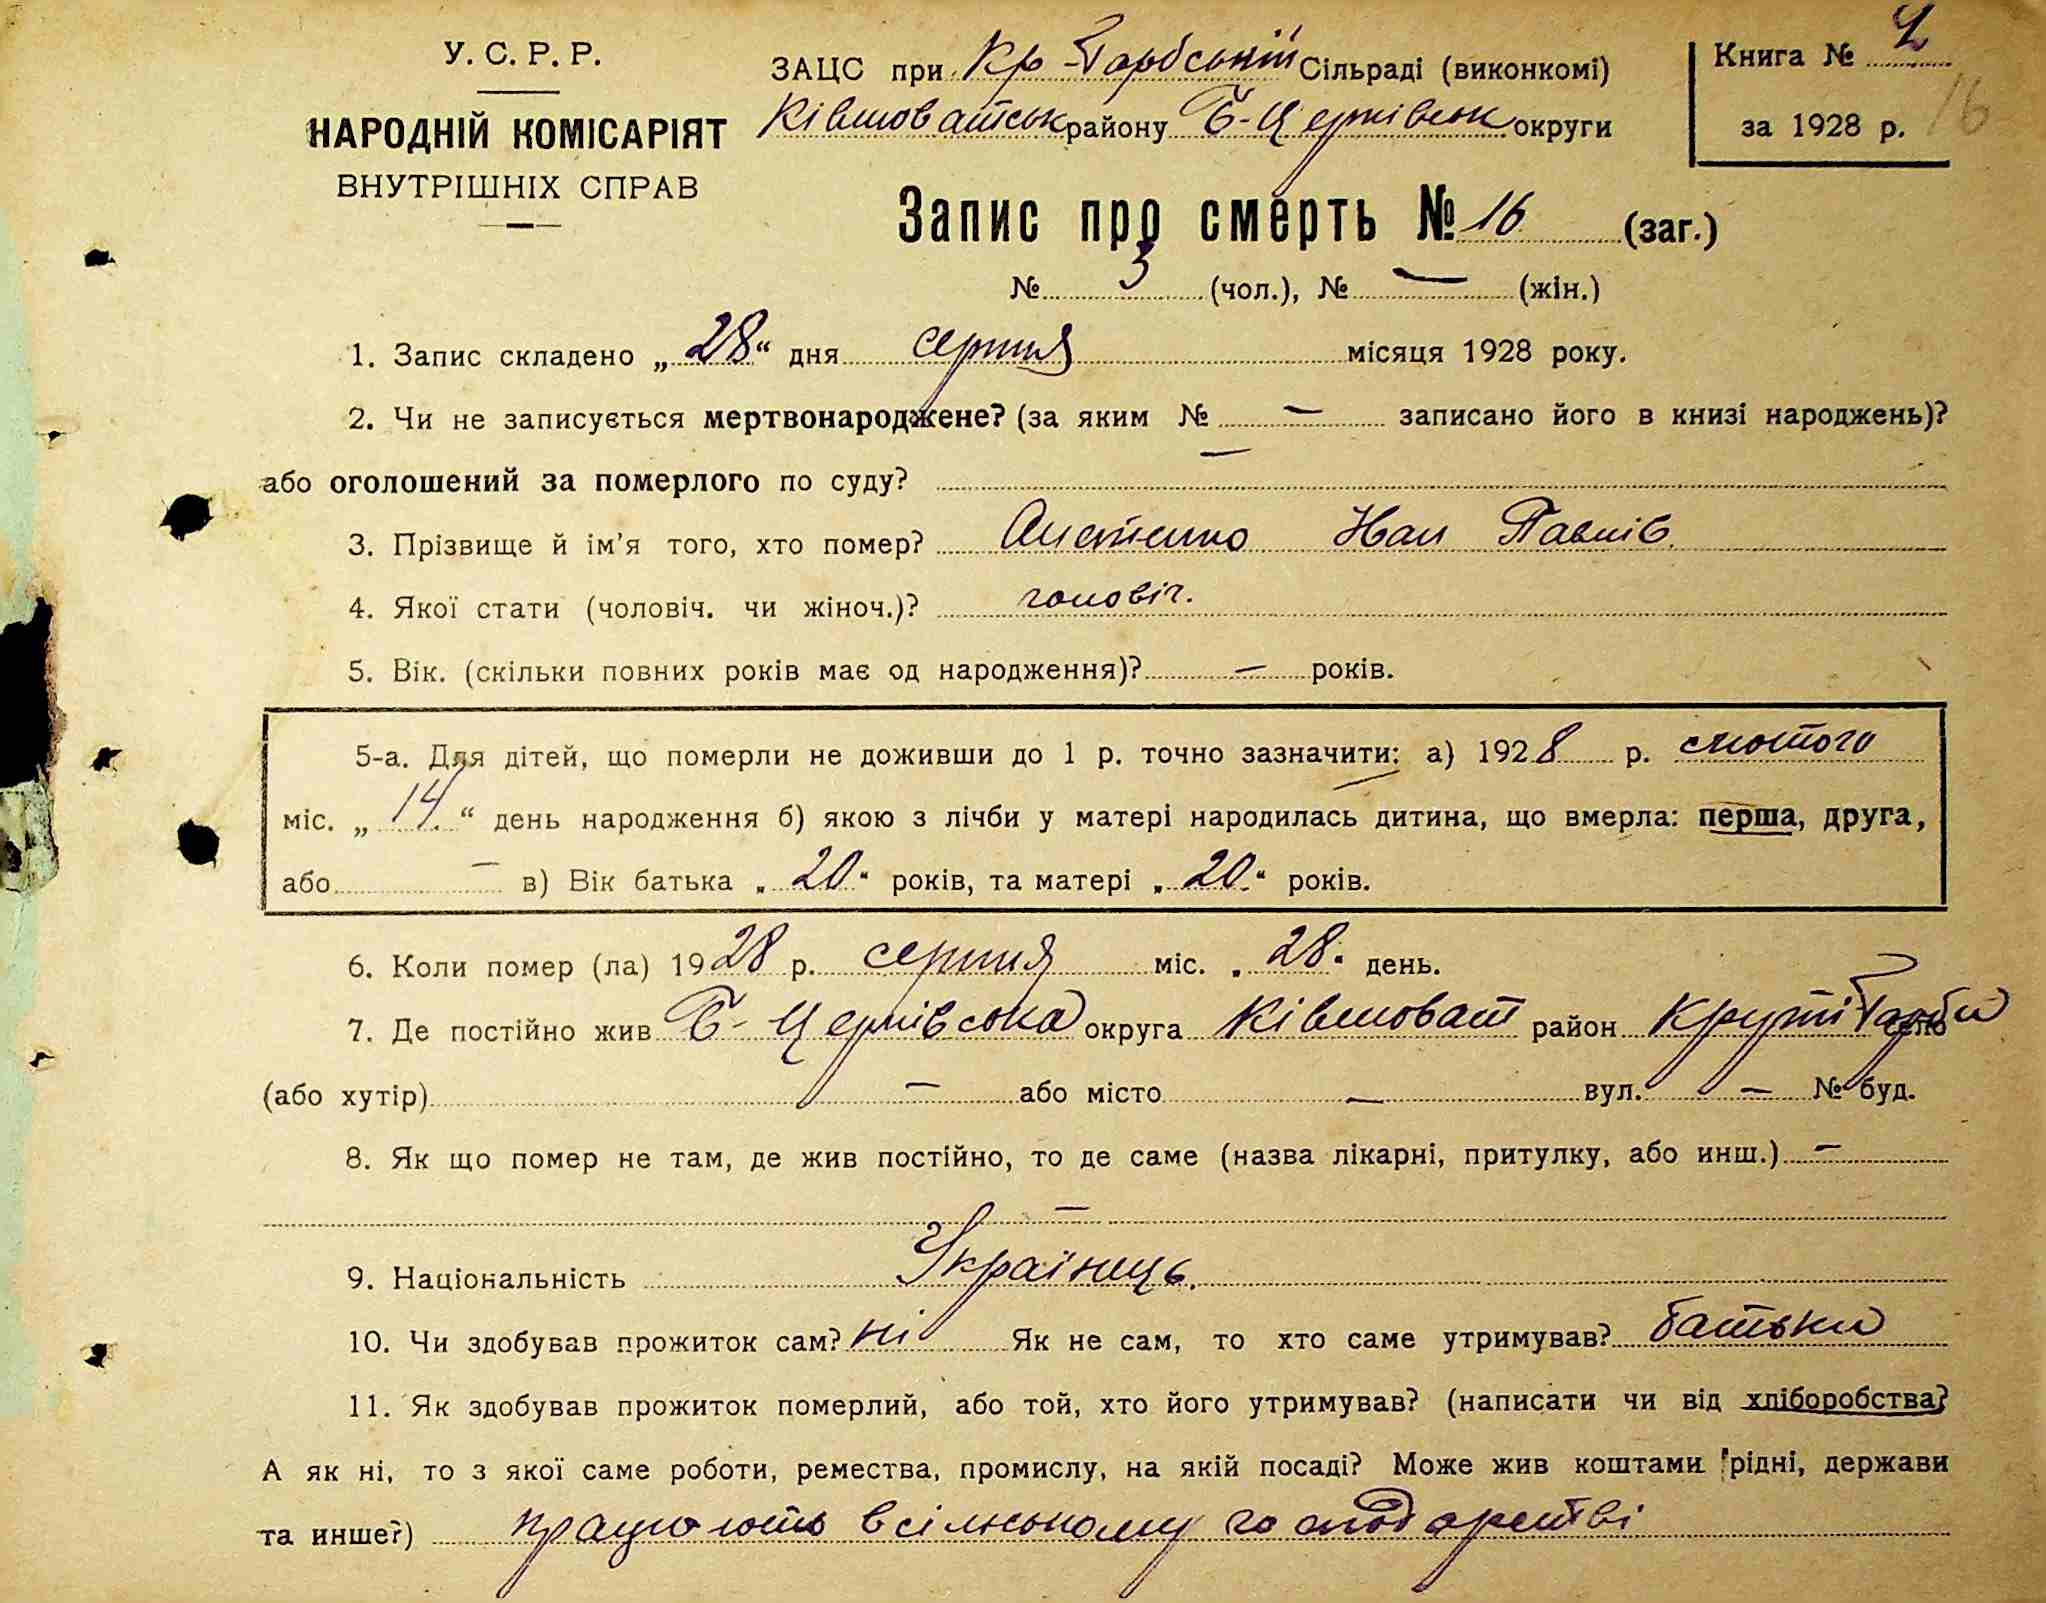 У. С. Р. Р.
НАРОДНІЙ КОМІСАРІЯТ
ВНУТРІШНІХ СПРАВ
ЗАЦС при Кр-Горбській Сільраді (виконкомі)
Ківшоватськ району Б-Церківськ округи
Книга № 2
за 1928 р. 16
Запис про смерть № 16 (заг.)
№ 3 (чол.), № — (жін.)
1. Запис складено „28“ дня серпня місяця 1928 року.
2. Чи не записується мертвонароджене? (за яким № — записано його в книзі народжень)?
або оголошений за померлого по суду? —
3. Прізвище й ім'я того, хто помер? Іван Павлів.
4. Якої стати (чоловіч. чи жіноч.)? чоловіч.
5. Вік. (скільки повних років має од народження)? — років.
5-а. Для дітей, що померли не доживши до 1 р. точно зазначити: а) 1928 р. лютого
міс. „14“ день народження б) якою з лічби у матері народилась дитина, що вмерла: перша, друга,
або — в) Вік батька „20“ років, та матері „20“ років.
6. Коли помер (ла) 1928 р. серпня міс. „28“ день.
7. Де постійно жив Б-Церківська округа Ківшоват район Круті Горби село
(або хутір) — або місто — вул. — № буд.
8. Як що помер не там, де жив постійно, то де саме (назва лікарні, притулку, або инш.) —
—
9. Національність Українець.
10. Чи здобував прожиток сам? ні Як не сам, то хто саме утримував? батьки
11. Як здобував прожиток померлий, або той, хто його утримував? (написати чи від хліборобства?
А як ні, то з якої саме роботи, ремества, промислу, на якій посаді? Може жив коштами рідні, держави
та инше?) працюють в сільському господарстві